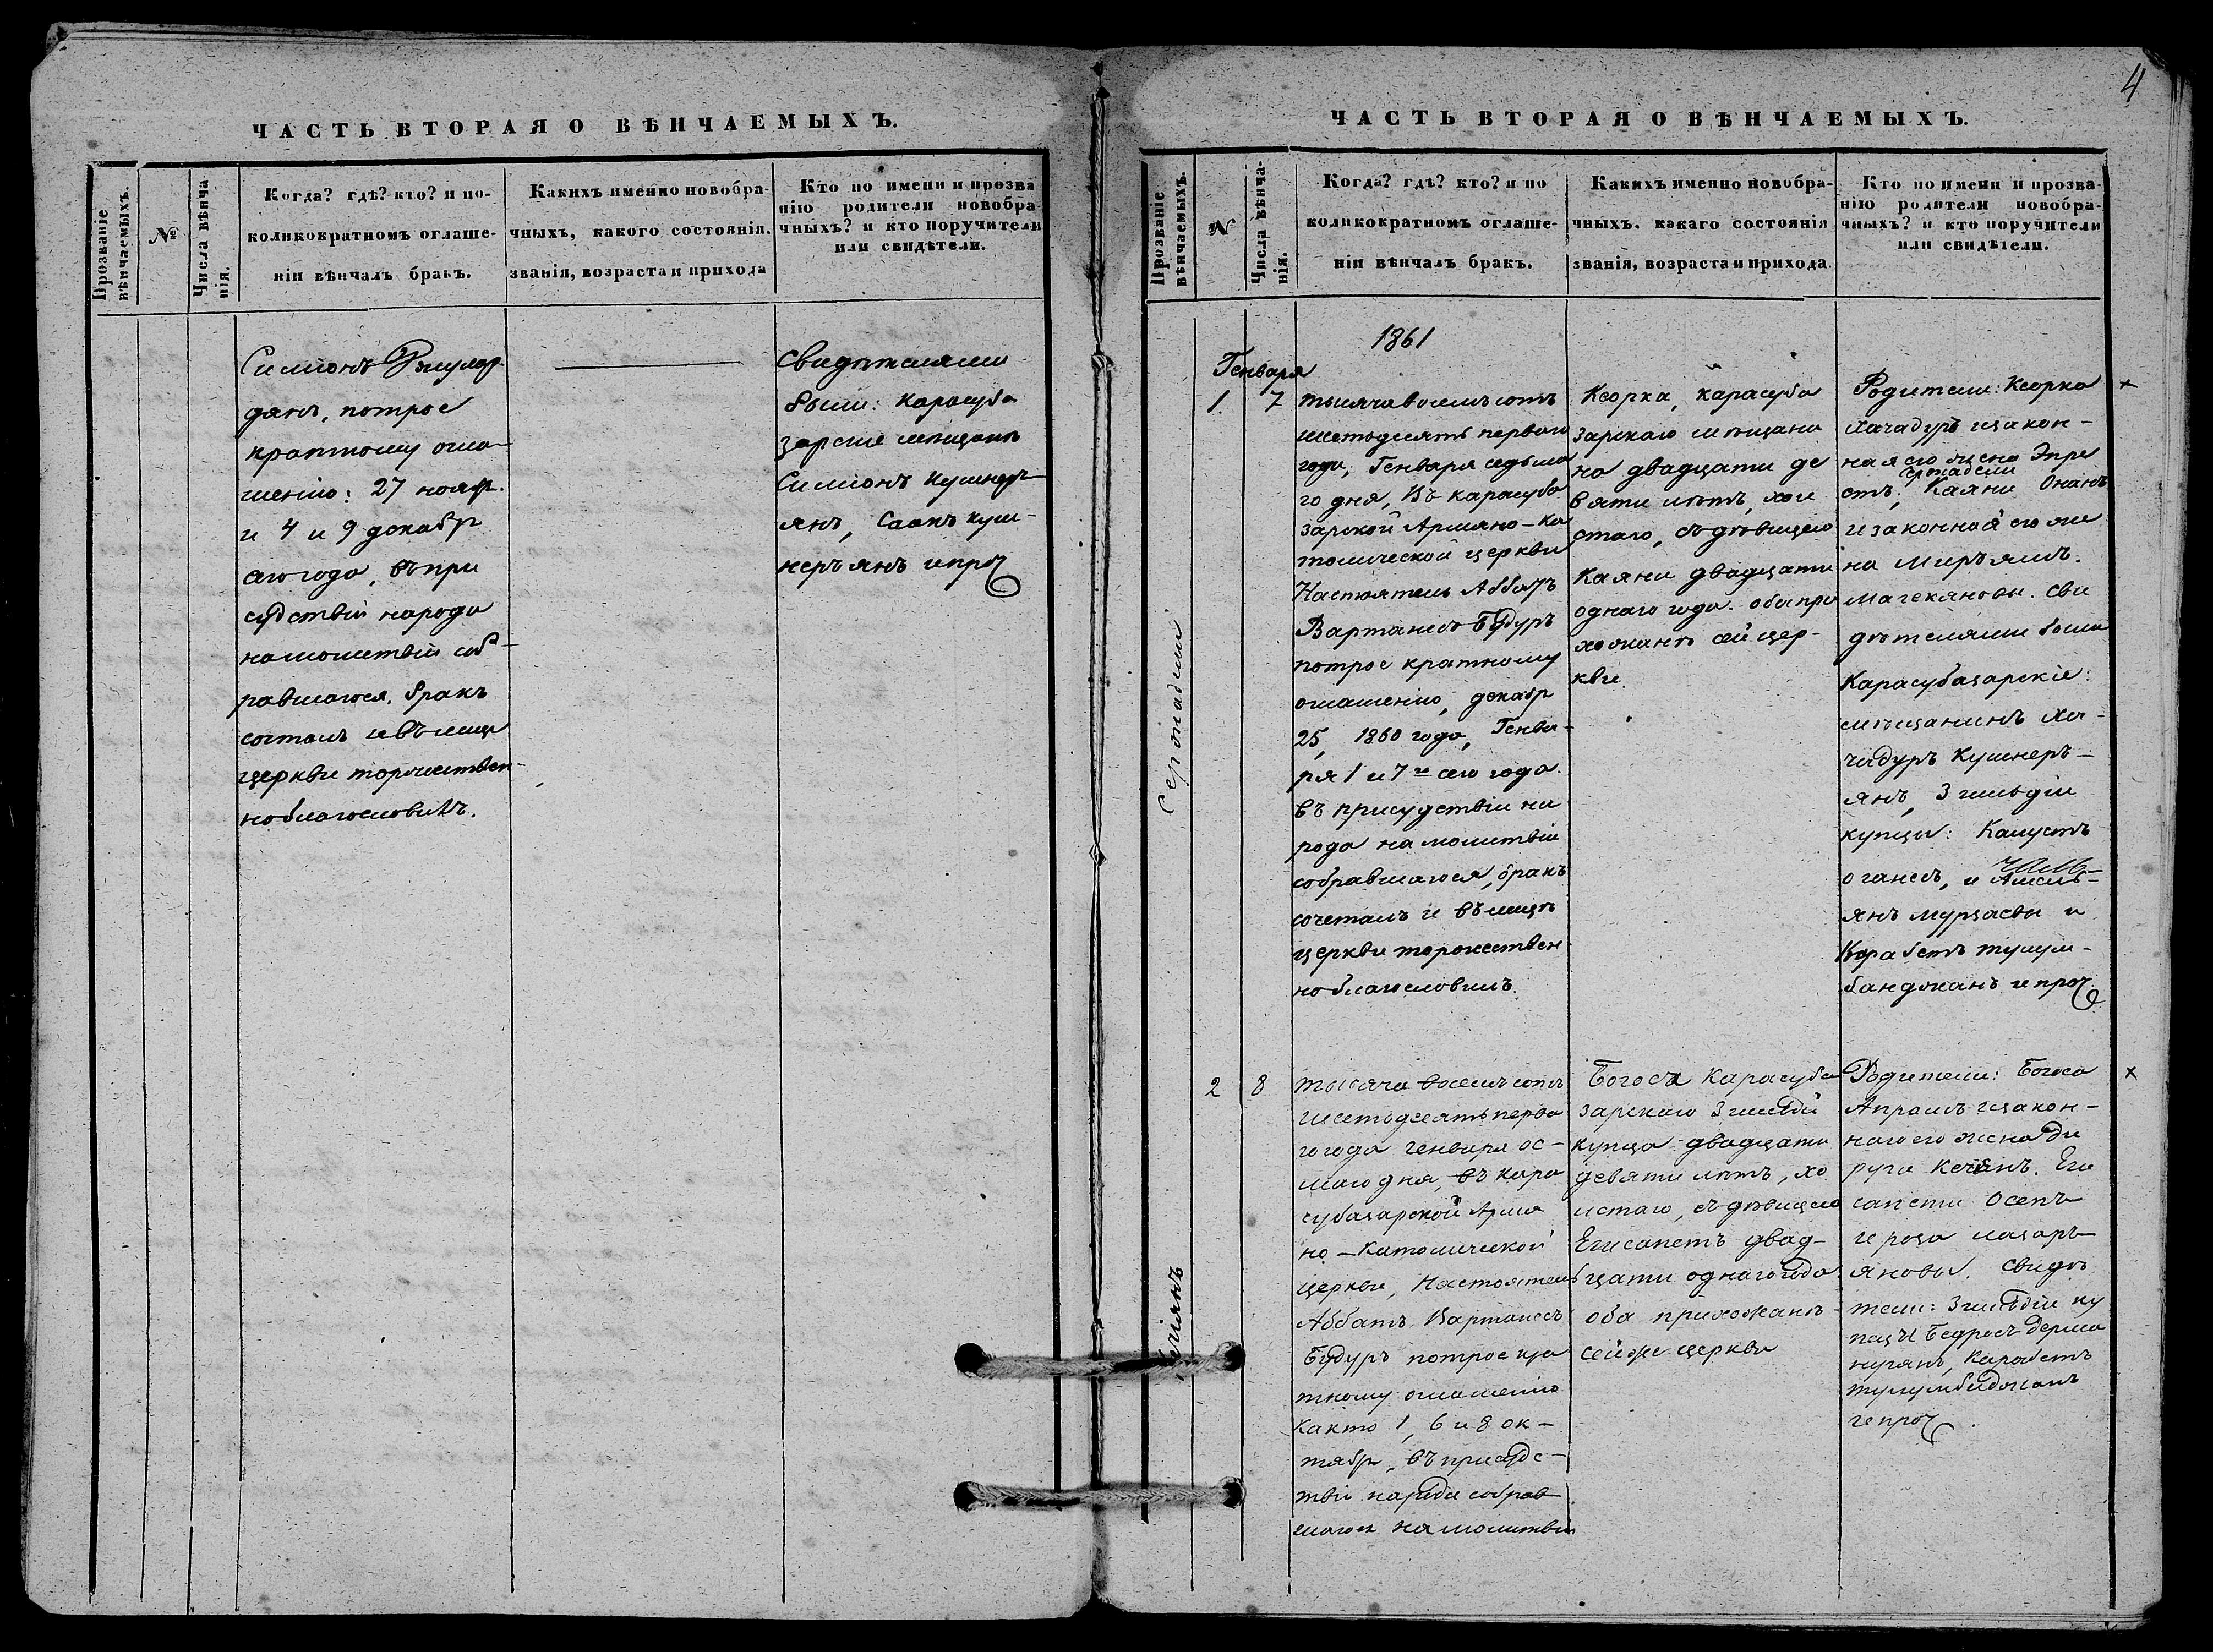 4
ЧАСТЬ ВТОРАЯ О ВѢНЧАЕМЫХЪ.
Прозваніе
вѣнчаемыхъ.
№
Числа вѣнча-
нія.
Когда? гдѣ? кто? и по-
коликократномъ оглаше-
ніи вѣнчалъ бракъ.
Какихъ именно новобра-
чныхъ, какого состоянія.
званія, возраста и прихода
Кто по имени и прозва
нію родители новобра-
чныхъ? и кто поручители
или свидѣтели.
Симонъ
дянъ, потрое
кратному огла-
шенію: 27 ноябр.
и 4 и 9 декабр
сего года, въ при
судствіи народа
на молитвѣ соб-
равшагося, бракъ
состалъ и въ лицѣ
церкви торжествен-
но благословилъ.
Свидѣтелями
были: Карасуба
зарскіе мѣщане
Симонъ Кушнерь-
янъ, Саакъ Куш-
нерьянъ и проч
ЧАСТЬ ВТОРАЯ О ВѢНЧАЕМЫХЪ.
Прозваніе
вѣнчаемыхъ.
N
Числа вѣнча-
нія.
Когда? гдѣ? кто? и по
коликократномъ оглаше-
ніи вѣнчалъ бракъ.
Какихъ именно новобра-
чныхъ. какаго состоянія
званія, возраста и прихода.
Кто по имени и прозва-
нію родители новобра-
чныхъ? и кто поручители
или свидѣтели.
1861
Генваря
Серопіаели
1. 7
тысяча восемьсотъ
шестьдесятъ перваго
года, Генваря седьма
го дня, въ Карасуба
зарской Армяно-Ка
толической церкви
Настоятель Аббатъ
Вартанесъ Будуръ
потрое кратному
оглашенію, декабр
25, 1860 года, Генва-
ря 1 и 7го сего года.
въ присудствіи на
рода на молитвѣ
собравшагося, бракъ
сочеталъ и въ лицѣ
церкви торжествен
но благословилъ.
Кеорка, Карасуба
зарскаго мѣщана
на двадцати де
вяти лѣтъ, холо
стаго, съ дѣвицею
Каяни двадцати
однаго года. оба при
хожанъ сей цер-
кви.
Родители: Кеорка
Хачадуръ и закон-
ная его жена Эпре
Каяни Онанъ
и законной его же
на Мирьямъ.
Магекяновы. Сви
дѣтелями были
Карасубазарскіе:
мѣщанинъ Ха-
чадуръ Кушнерь-
янъ, 3 гильдіи
купцы: Калустъ
Оганесъ, и
янъ Мурзаевы и
Карабетъ Тулум-
банджянъ и проч.
+
2 8
тысяча восемьсотъ
шестьдесятъ перва
го года Генваря ос-
маго дня, въ Кара
субазарской Армя
но-Католической
церкви, Настоятель
Аббатъ Вартанесъ
Будуръ потрое кра
тному оглашенію
както 1, 6 и 8 ок-
тябр, въ присудс-
твіи народа собрав
шагося на молитвѣ
Богоса Карасуба
зарскаго 3 гильдіи
купца двадцати
девяти лѣтъ, хо
лстаго, съ дѣвицею
Егисапетъ двад-
цати однаго года
оба прихожанъ
сей же церкви
Родители: Богоса
Апрамъ и закон-
наго его жена Ди
руги Кечіянъ. Еги
сапети Осепъ
и роза Лазарь
яновы. Свидѣ
тели: 3 гильдіи ку
пацы Бедросъ Дерма
нуянъ, Карабетъ
Тулумбаджанъ
и проч.
х